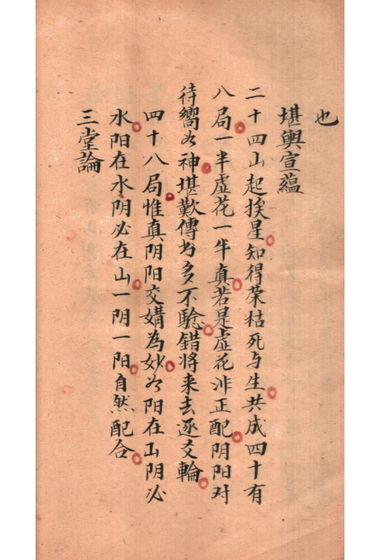 也
堪輿宣蘊
二十四山起挨星知得荣枯死与生共成四十有
八局一半虚花一半真若是虚花非正配阴阳对
待嚮为神堪歎傳书多不驗錯将来去逐爻輪
四十八局惟真阴阳交媾為妙如阳在山阴必
水阳在水阴必在山一阴一阳自然配合
三堂論